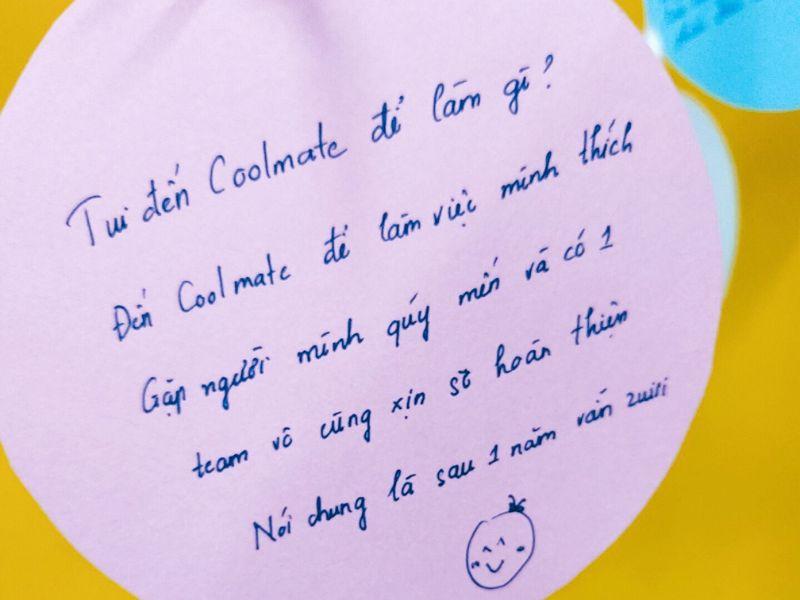 Tui đến Coolmate để làm gì?
Đến Coolmate để làm việc mình thích
Gặp người mình quý mến và có 1
team vô cùng xịn sò hoàn thiện
Nói chung là sau 1 năm vẫn zuiii